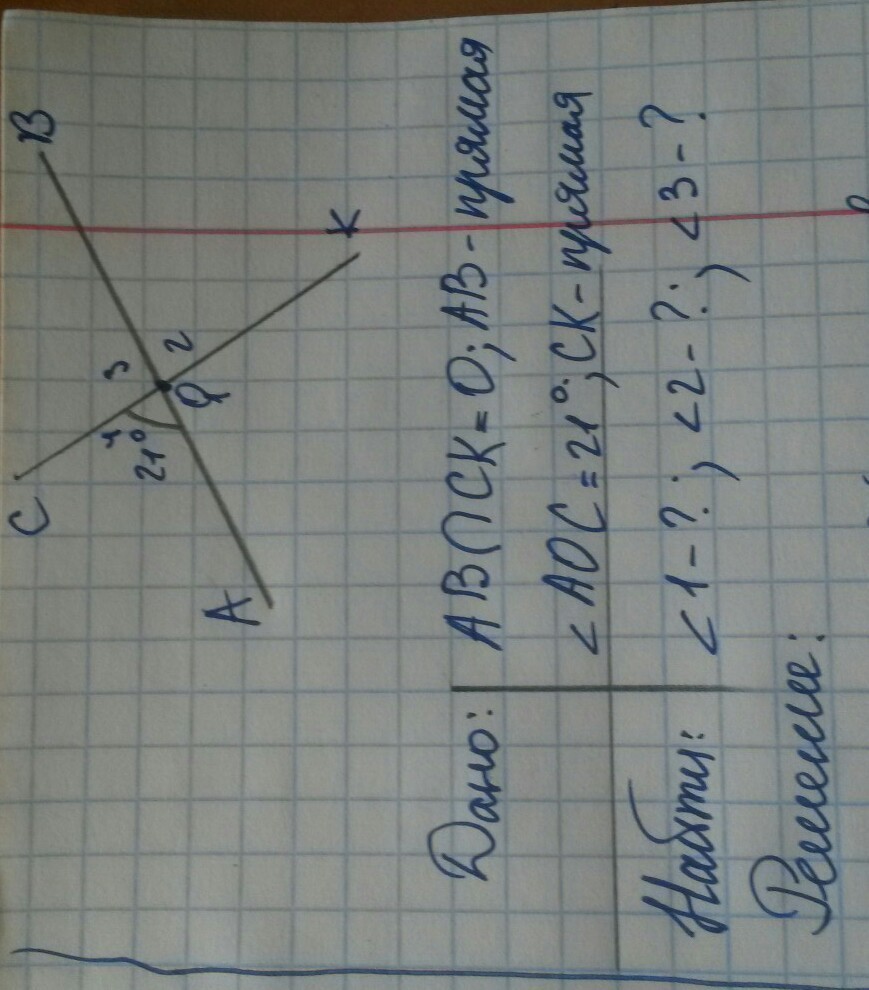 B
C
3
K
4
2
21°
O
A
Дано: AB∩CK=O; AB-прямая
<AOC=21°; CK-прямая
Найти: <1-?; <2-?; <3-?
Решение: